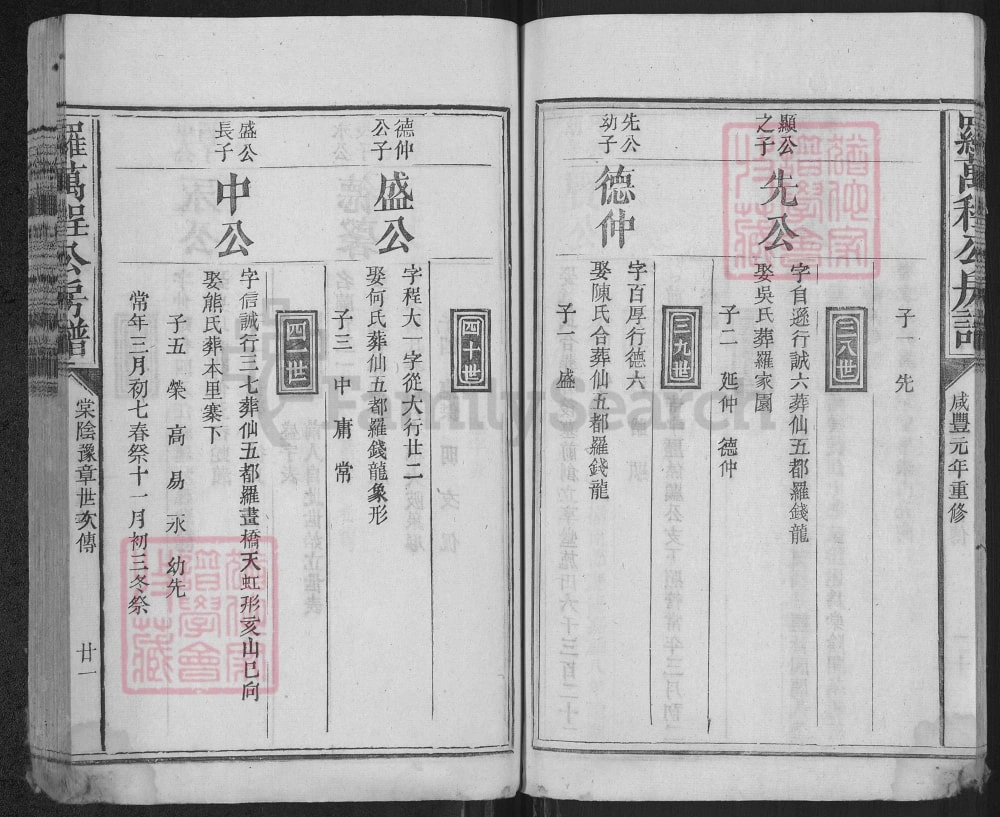 羅萬程公房譜
咸豐元年重修
子一 先
三八世
顯公之子
先公
字自遜行誠六葬仙五都羅錢龍
娶吳氏葬羅家園
子二 延仲 德仲
三九世
先公幼子
德仲
字百厚行德六
娶陳氏合葬仙五都羅錢龍
子 盛
四十世
德仲公子
盛公
字程大一字從大行廿二
娶何氏葬仙五都羅錢龍象形
子三 中 庸 常
四一世
盛公長子
中公
字信誠行三七葬仙五都羅畫橋天虹形亥山巳向
娶熊氏葬本里寨下
子五 榮 高 易 永 幼先
常年三月初七春祭十一月初三冬祭
羅萬程公房譜
棠陰豫章世次傳
廿一
FamilySearch